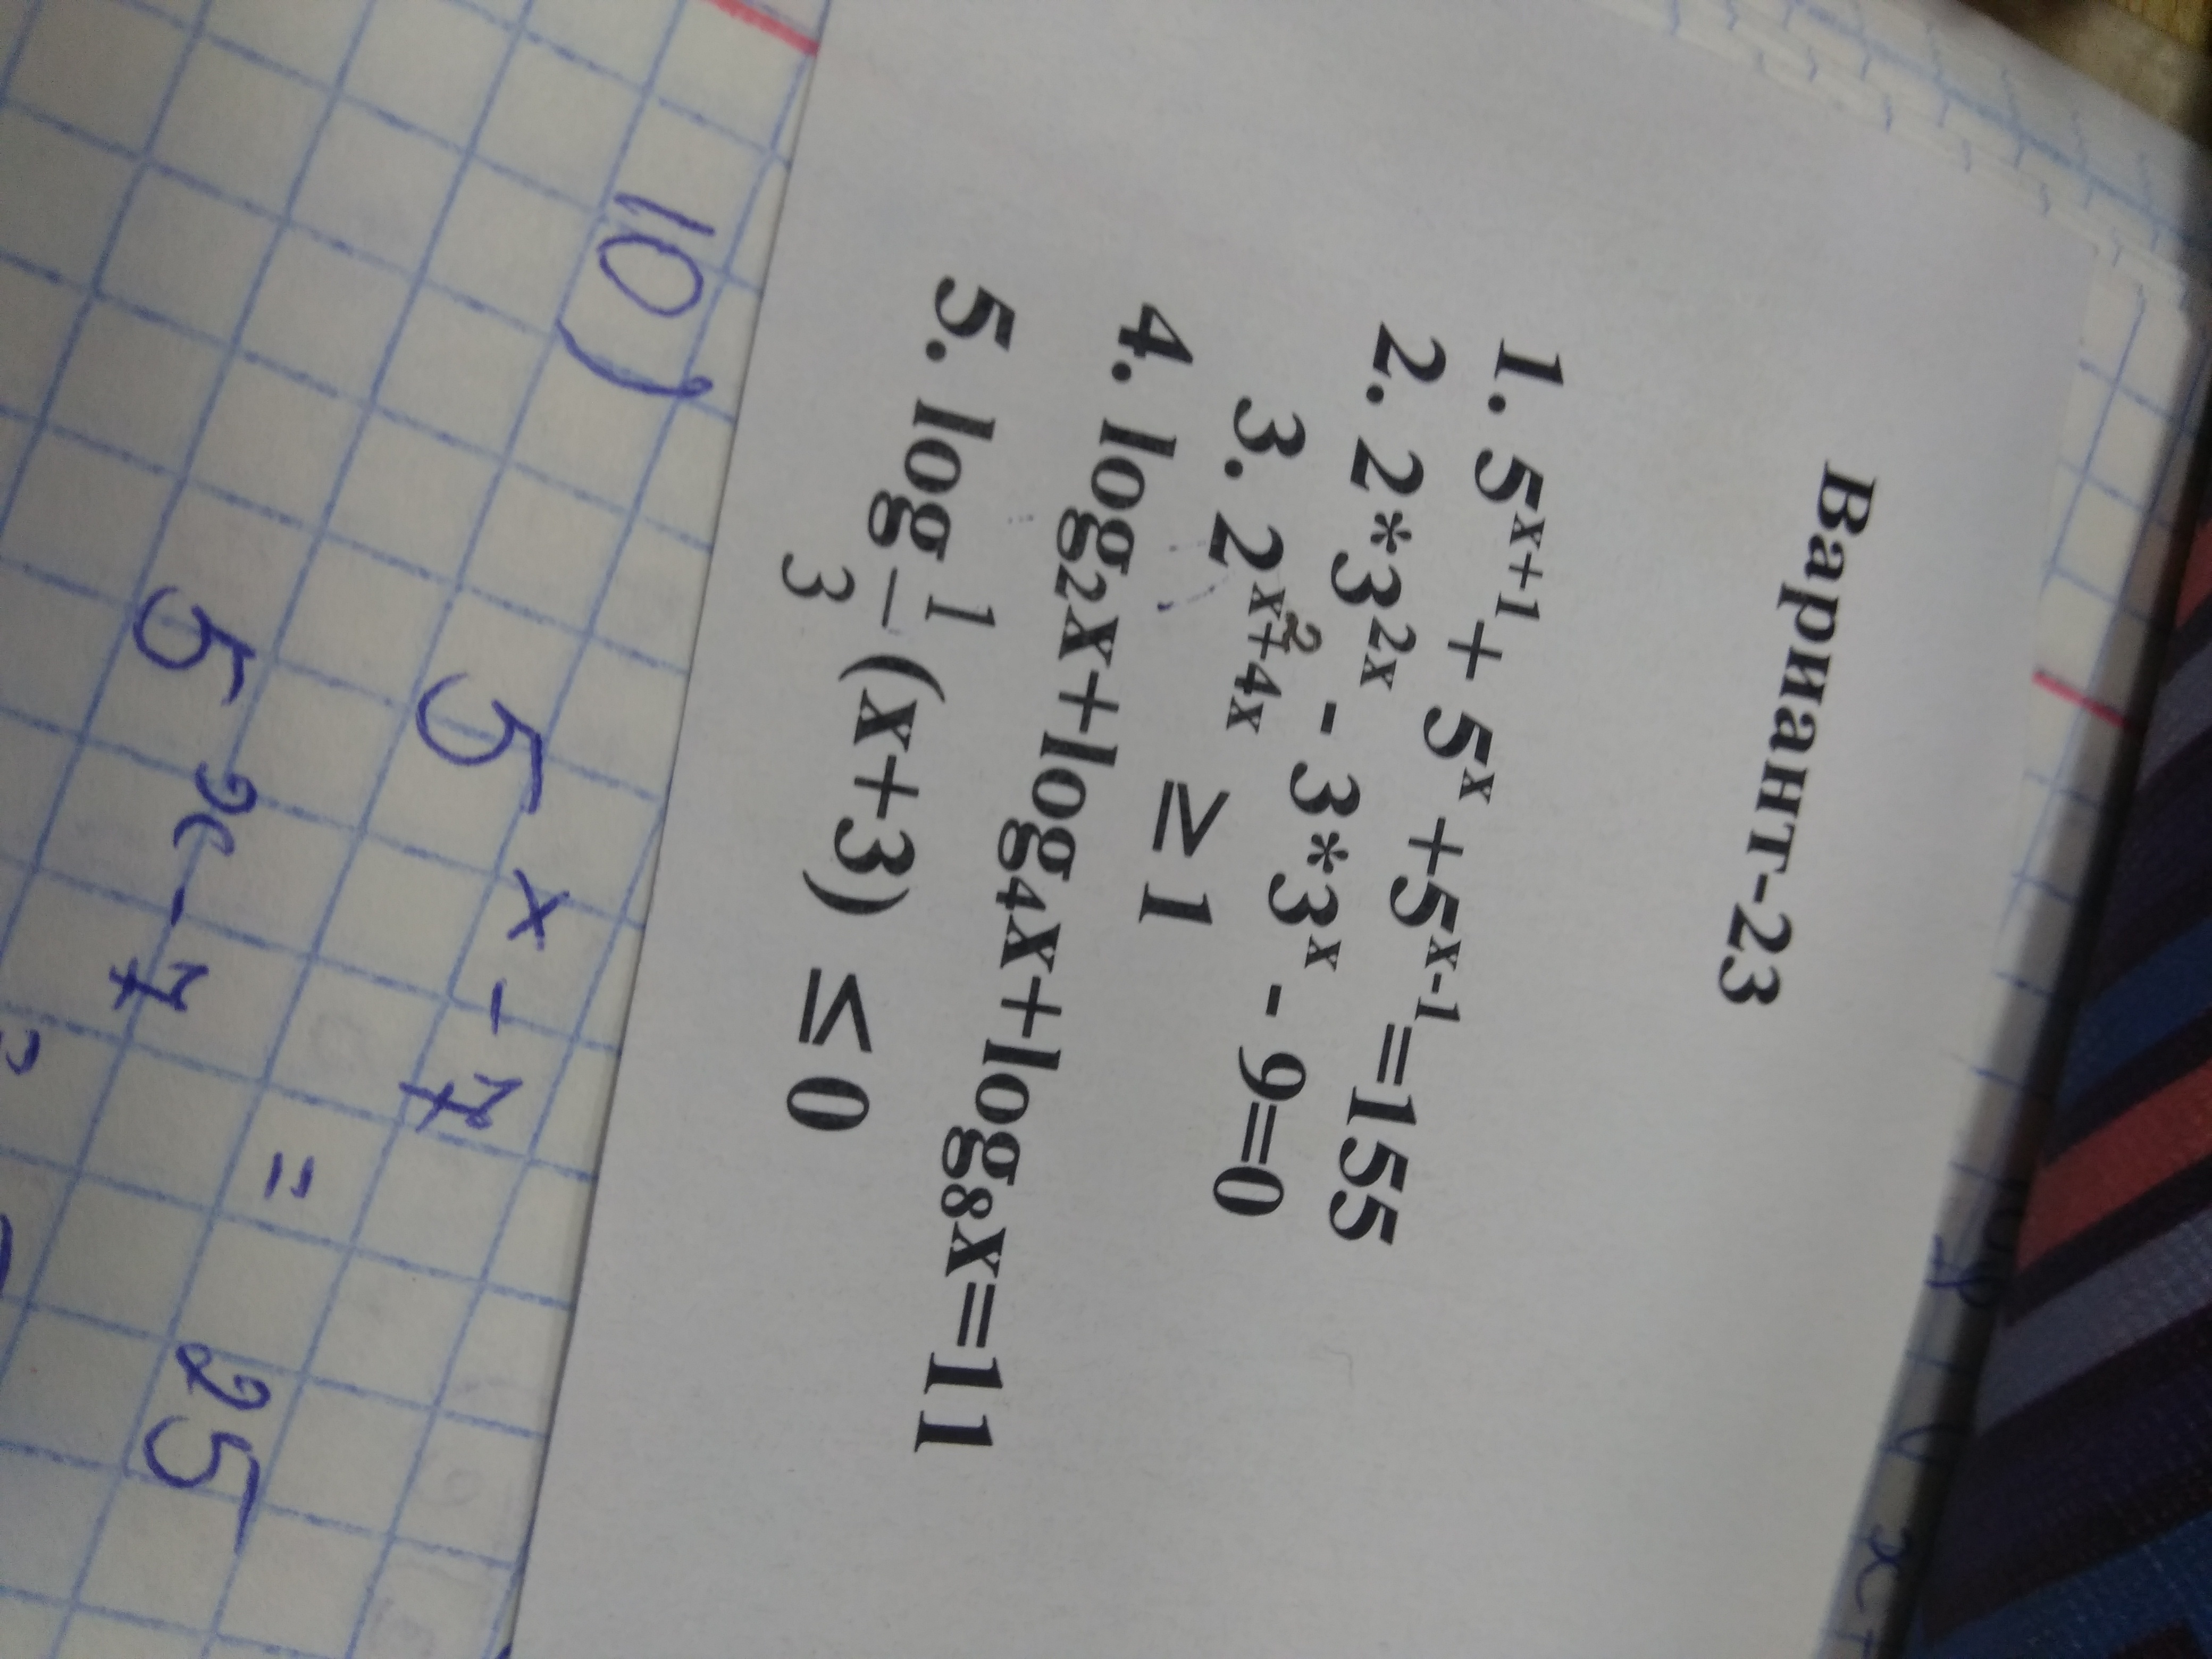 Вариант-23
1. 5ˣ⁺¹ + 5ˣ +5ˣ⁻¹=155
2. 2*3²ˣ - 3*3ˣ - 9=0
3. 2^(x²+4x) ≥ 1
4. log₂x+log₄x+log₈x=11
5. log_(1/3) (x+3) ≤ 0
10) 5ˣ⁻⁷
5ˣ⁻⁷ = 25